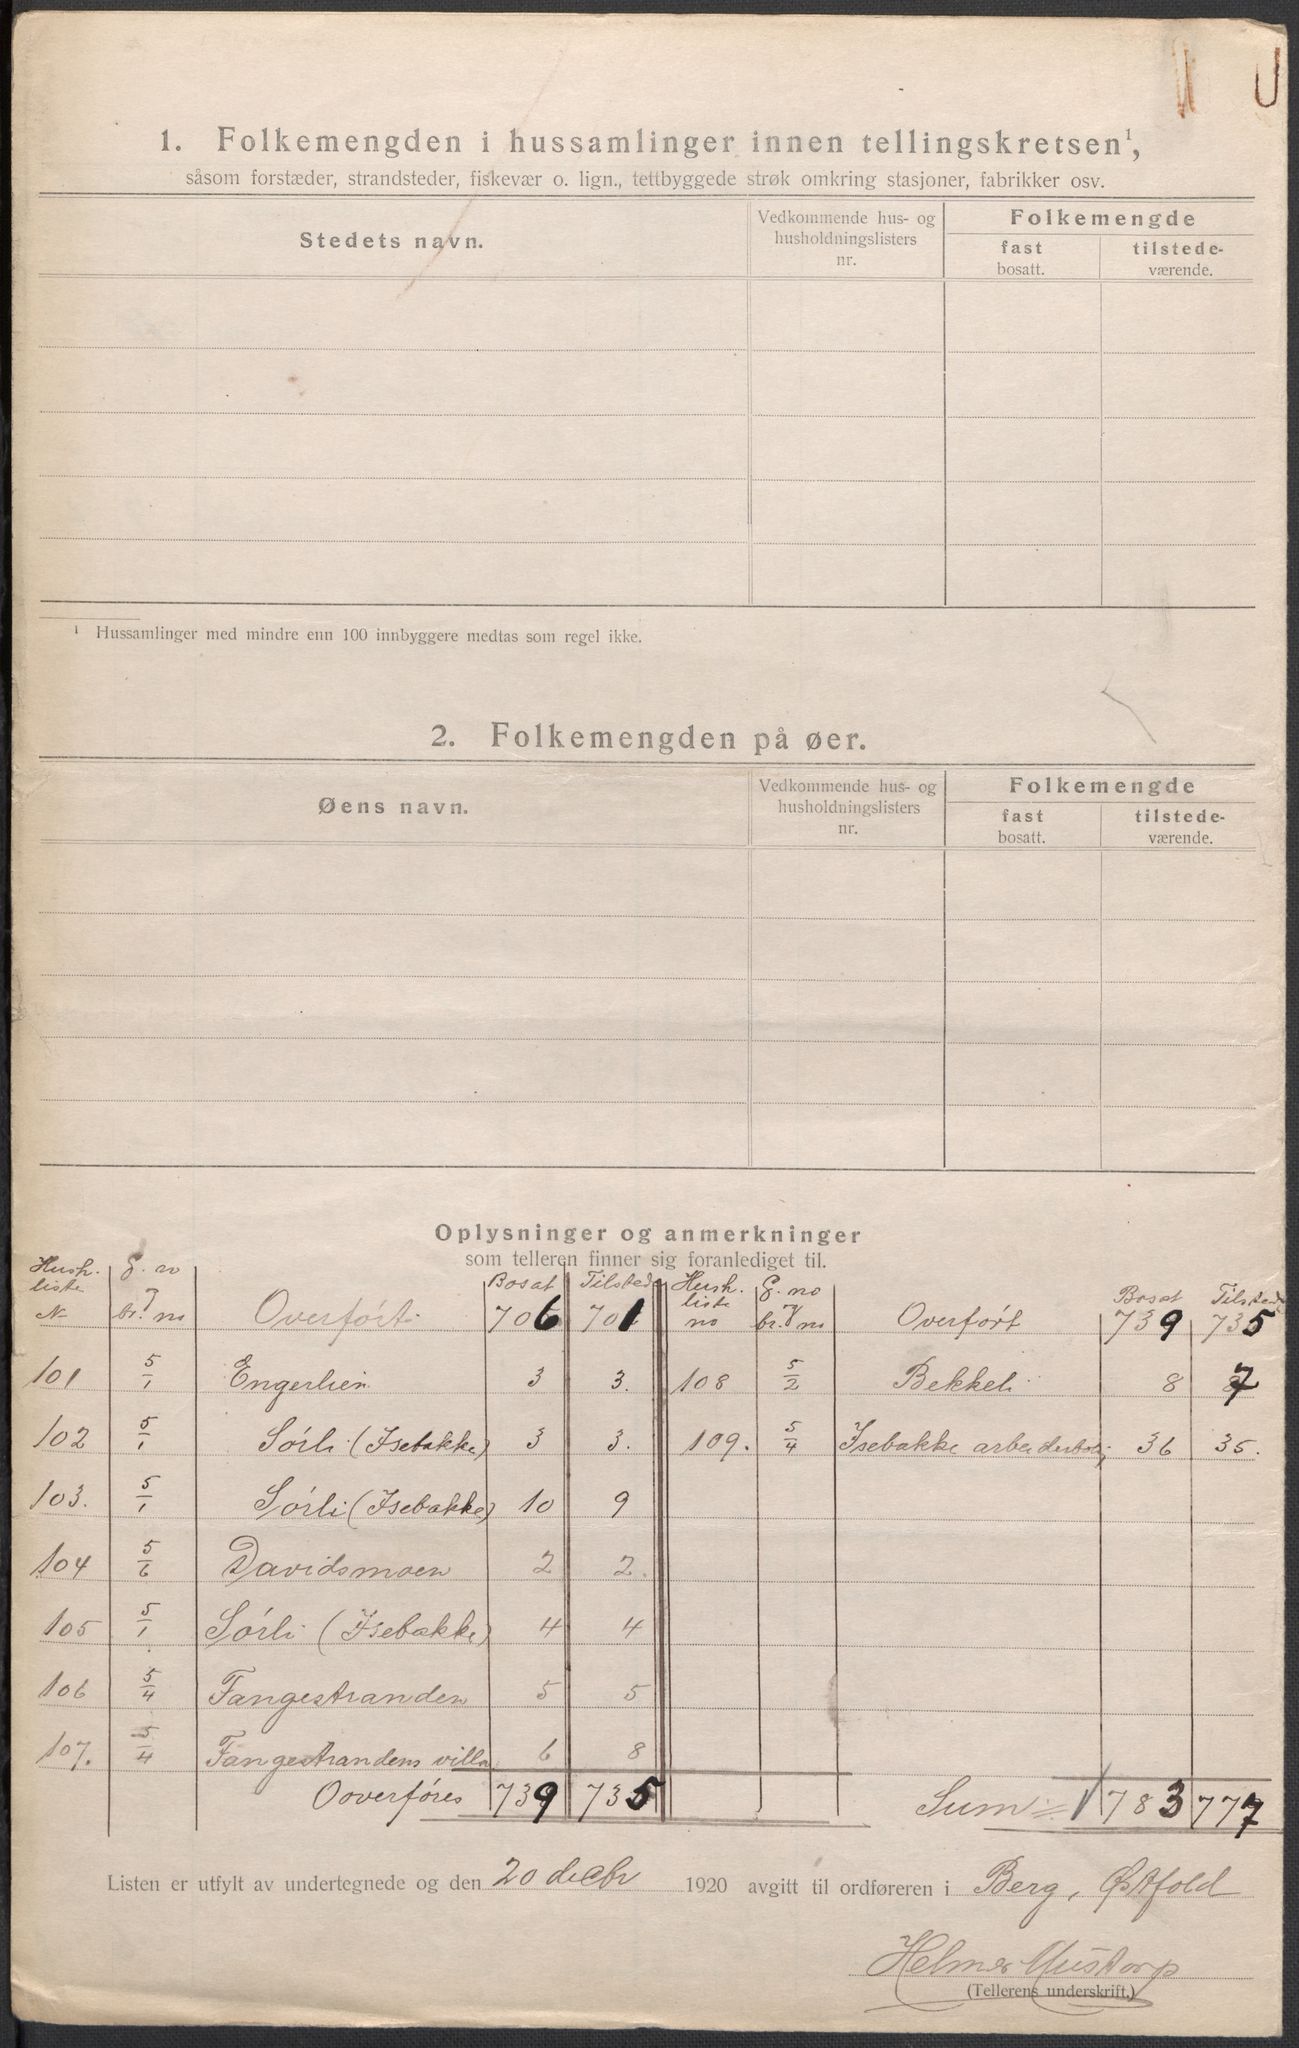 1. Folkemengden i hussamlinger innen tellingskretsen¹,
såsom forstæder, strandsteder, fiskevær o. lign., tettbyggede strøk omkring stasjoner, fabrikker osv.
Stedets navn. Vedkommende hus- og husholdningslisters nr. Folkemengde
fast bosatt. tilstede-værende.
¹ Hussamlinger med mindre enn 100 innbyggere medtas som regel ikke.
2. Folkemengden på øer.
Øens navn. Vedkommende hus- og husholdningslisters nr. Folkemengde
fast bosatt. tilstede-værende.
Oplysninger og anmerkninger
som telleren finner sig foranlediget til.
Hush. liste N G. no br. no Overført Bosat 706 Tilstede 701 Hush. liste no G. no br. no Overført Bosat 739 Tilstede 735
101 5/1 Engerlien 3 3. 108 5/2 Bekkeli 8 7
102 5/1 Sørli (Isebakke) 3 3. 109. 5/4 Isebakke arbeiderbolig 36 35.
103. 5/1 Sørli (Isebakke) 10 9
104 5/6 Davidsmoen 2 2.
105 5/1 Sørli (Isebakke) 4 4
106 5/4 Fangestranden 5 5
107. 5/4 Fangestrandens villa 6 8
Ooverføres 739 735 Sum = 783 777
Listen er utfylt av undertegnede og den 20 decbr 1920 avgitt til ordføreren i Berg, Østfold
Helmer
(Tellerens underskrift.)